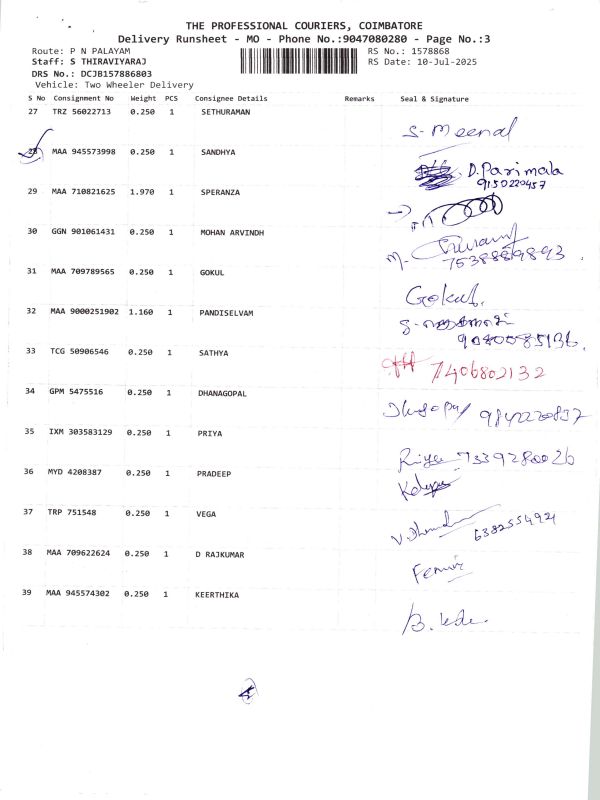 THE PROFESSIONAL COURIERS, COIMBATORE
Delivery Runsheet - MO - Phone No.:9047080280 - Page No.:3
Route: P N PALAYAM RS No.: 1578868
Staff: S THIRAVIYARAJ RS Date: 10-Jul-2025
DRS No.: DCJB157886803
Vehicle: Two Wheeler Delivery
S No Consignment No Weight PCS Consignee Details Remarks Seal & Signature
27 TRZ 56022713 0.250 1 SETHURAMAN
S- Meenal
28 MAA 945573998 0.250 1 SANDHYA
D. Parimala
9150220457
29 MAA 710821625 1.970 1 SPERANZA
30 GGN 901061431 0.250 1 MOHAN ARVINDH
M-
7538889893
31 MAA 709789565 0.250 1 GOKUL
Gokul.
32 MAA 9000251902 1.160 1 PANDISELVAM
9080085136.
33 TCG 50906546 0.250 1 SATHYA
7406802132
34 GPM 5475516 0.250 1 DHANAGOPAL
9842220837
35 IXM 303583129 0.250 1 PRIYA
Priya 7339280026
36 MYD 4208387 0.250 1 PRADEEP
37 TRP 751548 0.250 1 VEGA
6382554921
38 MAA 709622624 0.250 1 D RAJKUMAR
39 MAA 945574302 0.250 1 KEERTHIKA
B.